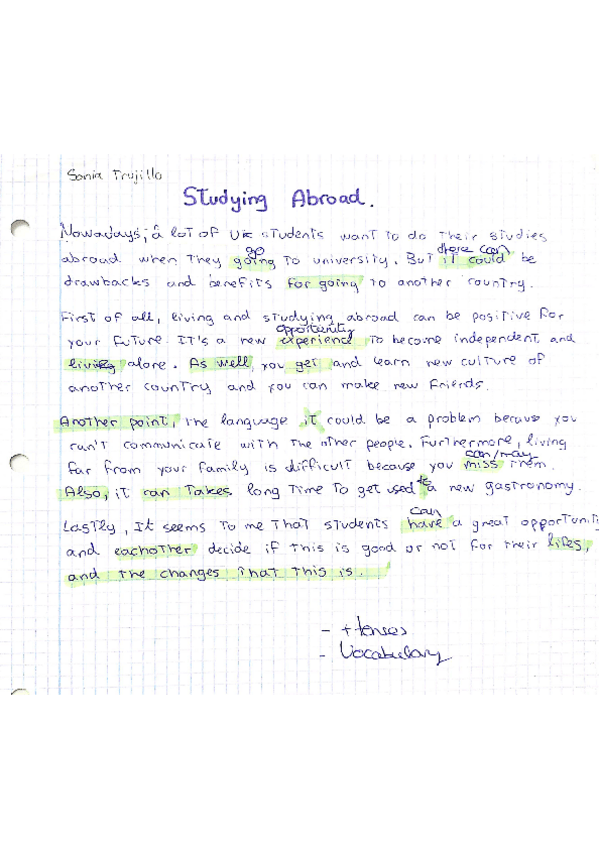 Sonia Trujillo
Studying Abroad.
Nowadays, a lot of UK students want to do their studies
go there can
abroad when they going to university. But it could be
drawbacks and benefits for going to another country.
First of all, living and studying abroad can be positive for
opportunity
your future. It's a new experiencie to become independent and
living alone. As well, you get and learn new culture of
another country and you can make new friends.
Another point, the language it could be a problem because you
can't communicate with the other people. Furthermore, living
can/may
far from your family is difficult because you miss them.
to
Also, it can takes long time to get used a new gastronomy.
can
Lastly, It seems to me that students have a great opportunity
and eachother decide if this is good or not for their lifes,
and the changes that this is.
- + tenses
- Vocabulary